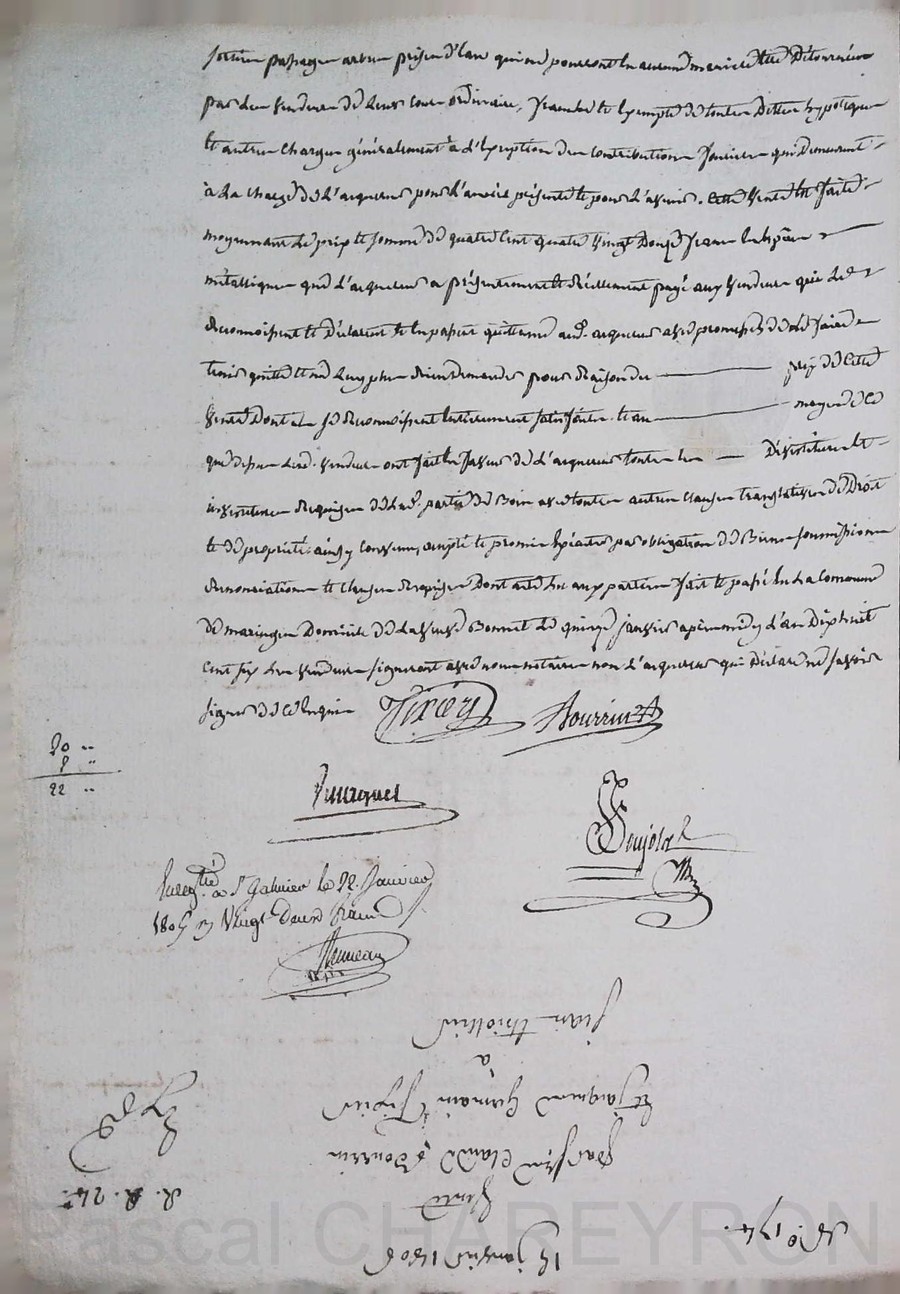 sorties passages arbres prises d'eau qui ne pourront en aucune maniere être détournées
par les vendeurs de leurs cours ordinaire, franche et exempte de toutes dettes hypoteques
et autres charges généralement à l'exeption des contributions foncieres qui demeurent
à la charge de l'acquereur pour l'année présente et pour l'avenir. Cette vente est faite
moyennant le prix et somme de quatre cent quatre vingt douze francs en espèces
métalliques que l'acquereur a présentement et réellement payé aux vendeurs qui le
reconnoissent et déclarent et en passent quittance aud. acquereur avec promesses de le faire
tenir quitte et ne luy plus rien demander pour raison du prix de cette
vente dont ils se reconnoissent entierement satisfaits et au moyen de ce
que dessus lesd. vendeurs ont fait en faveur de l'acquereur toutes les dévestitures et
investitures requises de lad. partie de Bois avec toutes autres clauses translatives de droit
et de propriété ainsy convenu, accepté et promis executer par obligation de Biens soumissions
renonciations et clauses requises dont acte lu aux parties fait et passé en la Commune
de maringes domicile de la veuve Bonnet le quinze janvier après midy l'an dix huit
cent six les vendeurs signeront avec nous notaires non l'acquereur qui a déclaré ne savoir
signer de ce enquis
20 "
2 "
22 "
Enregtré à St Galmier le 22. Janvier
1806 R Vingt deux francs
15 janvier 1806
No. 174.
Vente
Claude
et
à
jean thiollier
R. R. 24